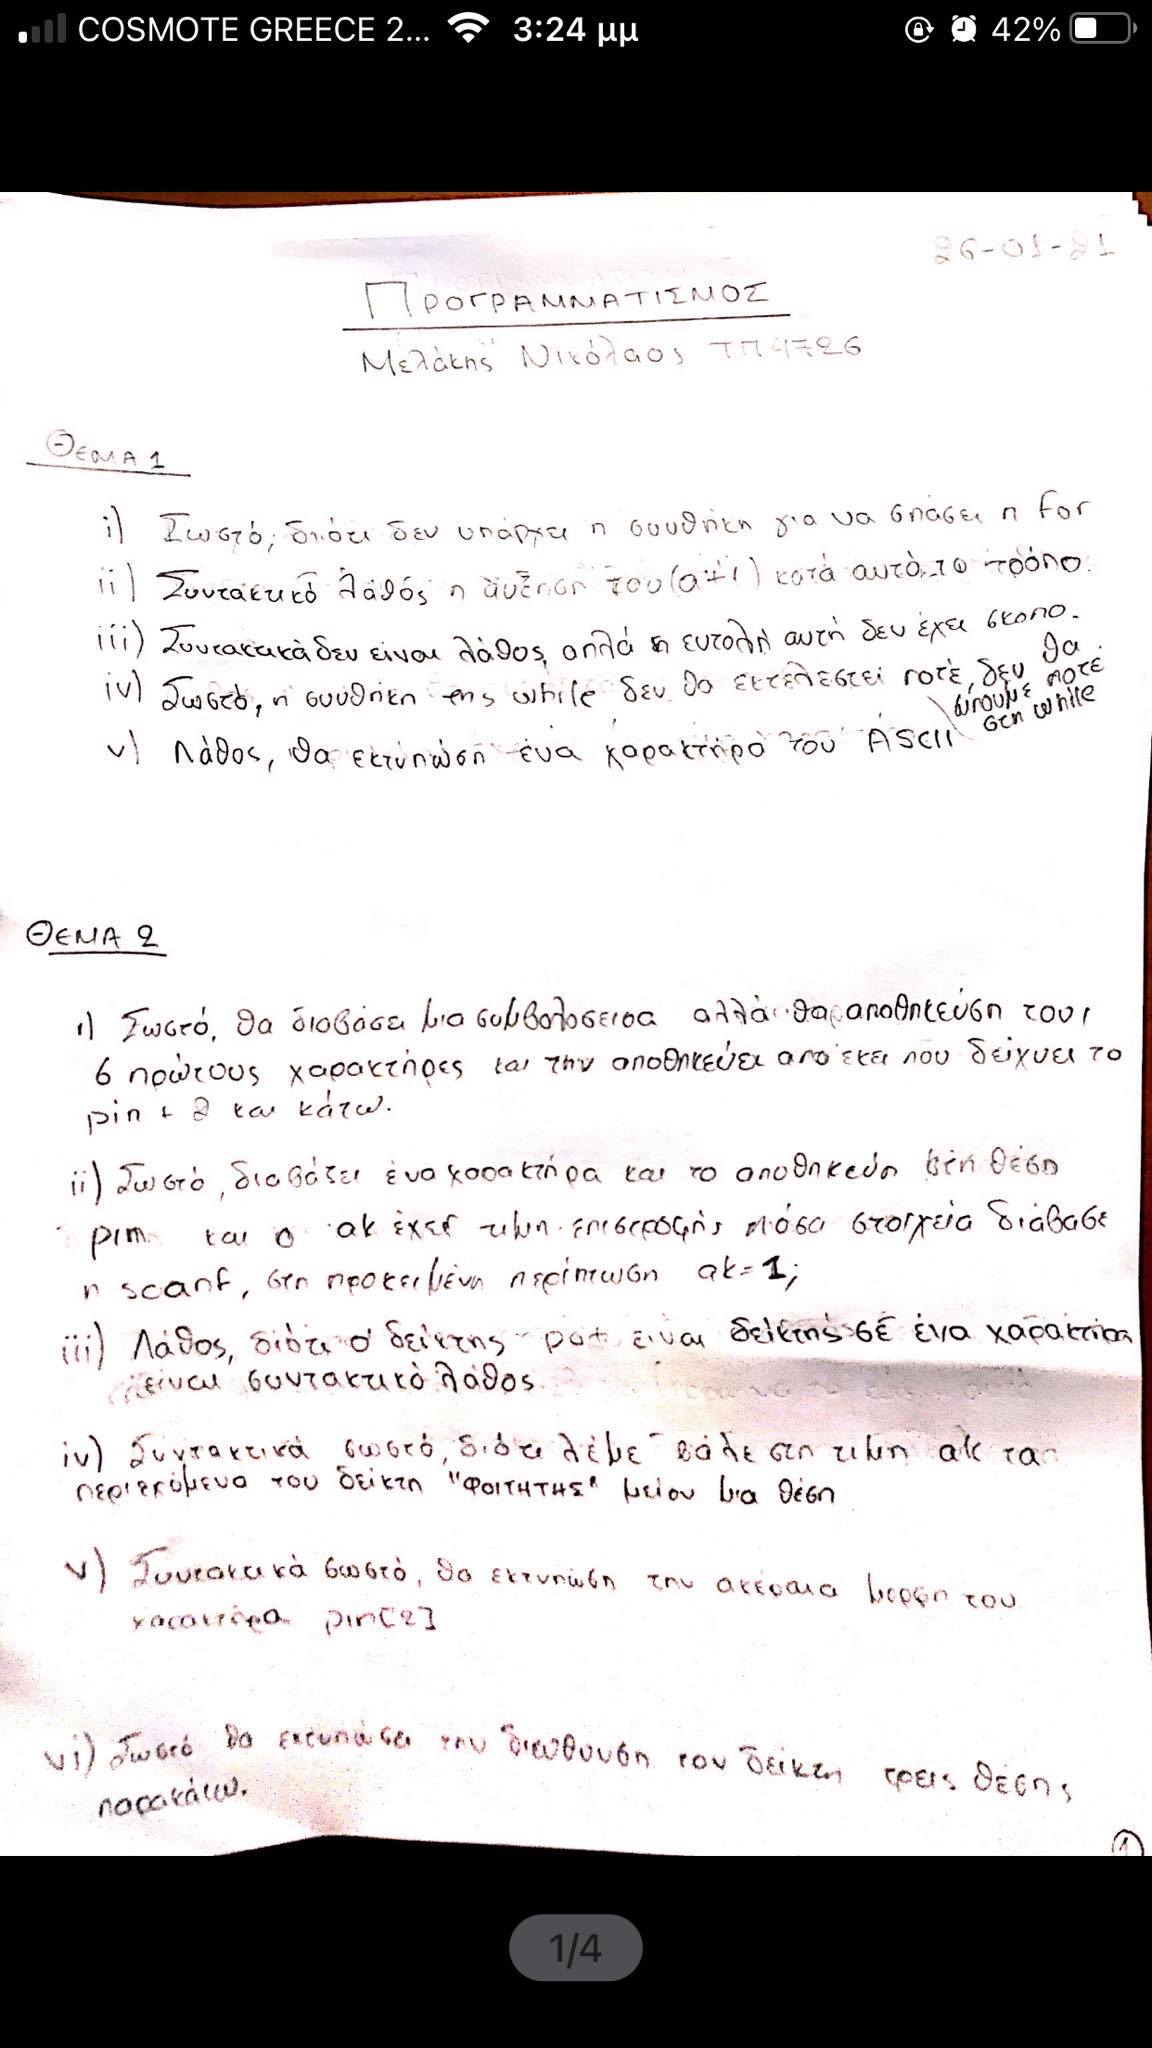 COSMOTE GREECE 2... 3:24 μμ 42%
26-01-21
ΠΡΟΓΡΑΜΜΑΤΙΣΜΟΣ
Μελάκης Νικόλαος ΤΠ4726
ΘΕΜΑ 1
i) Σωστό, διότι δεν υπάρχει η συνθήκη για να σπάσει η for
ii) Συντακτικό λάθος η αύξηση του (a++1) κατά αυτό το τρόπο.
iii) Συντακτικά δεν είναι λάθος, απλά η εντολή αυτή δεν έχει σκοπο.
iv) Σωστό, η συνθήκη της while δεν θα εκτελεστεί ποτέ, δεν θα
μπουμε ποτέ
στη while
v) Λάθος, θα εκτυπώση ένα χαρακτήρα του ASCII
ΘΕΜΑ 2
i) Σωστό, θα διαβάσει μια συμβολοσειρα αλλά θα αποθηκεύση τους
6 πρώτους χαρακτήρες και την αποθηκεύει από εκει που δείχνει το
pin + 2 και κάτω.
ii) Σωστό, διαβάζει ένα χαρακτήρα και το αποθηκεύη στη θέση
pin και ο ak έχει τιμη επιστροφής πόσα στοιχεία διάβασε
η scanf, στη προκειμένη περίπτωση ak=1;
iii) Λάθος, διότι ο δείκτης είναι δείκτης σε ένα χαρακτήρα
είναι συντακτικό λάθος
iv) Συντακτικά σωστό, διότι λέμε βάλε στη τιμη ak τα
περιεχόμενα του δείκτη "ΦΟΙΤΗΤΗΣ" μείον μια θέση
v) Συντακτικά σωστό, θα εκτυπώση την ακέραια μορφη του
χαρακτήρα pin[2]
vi) Σωστό θα εκτυπώσει την διεύθυνση του δείκτη τρεις θέσης
παρακάτω.
1
1/4